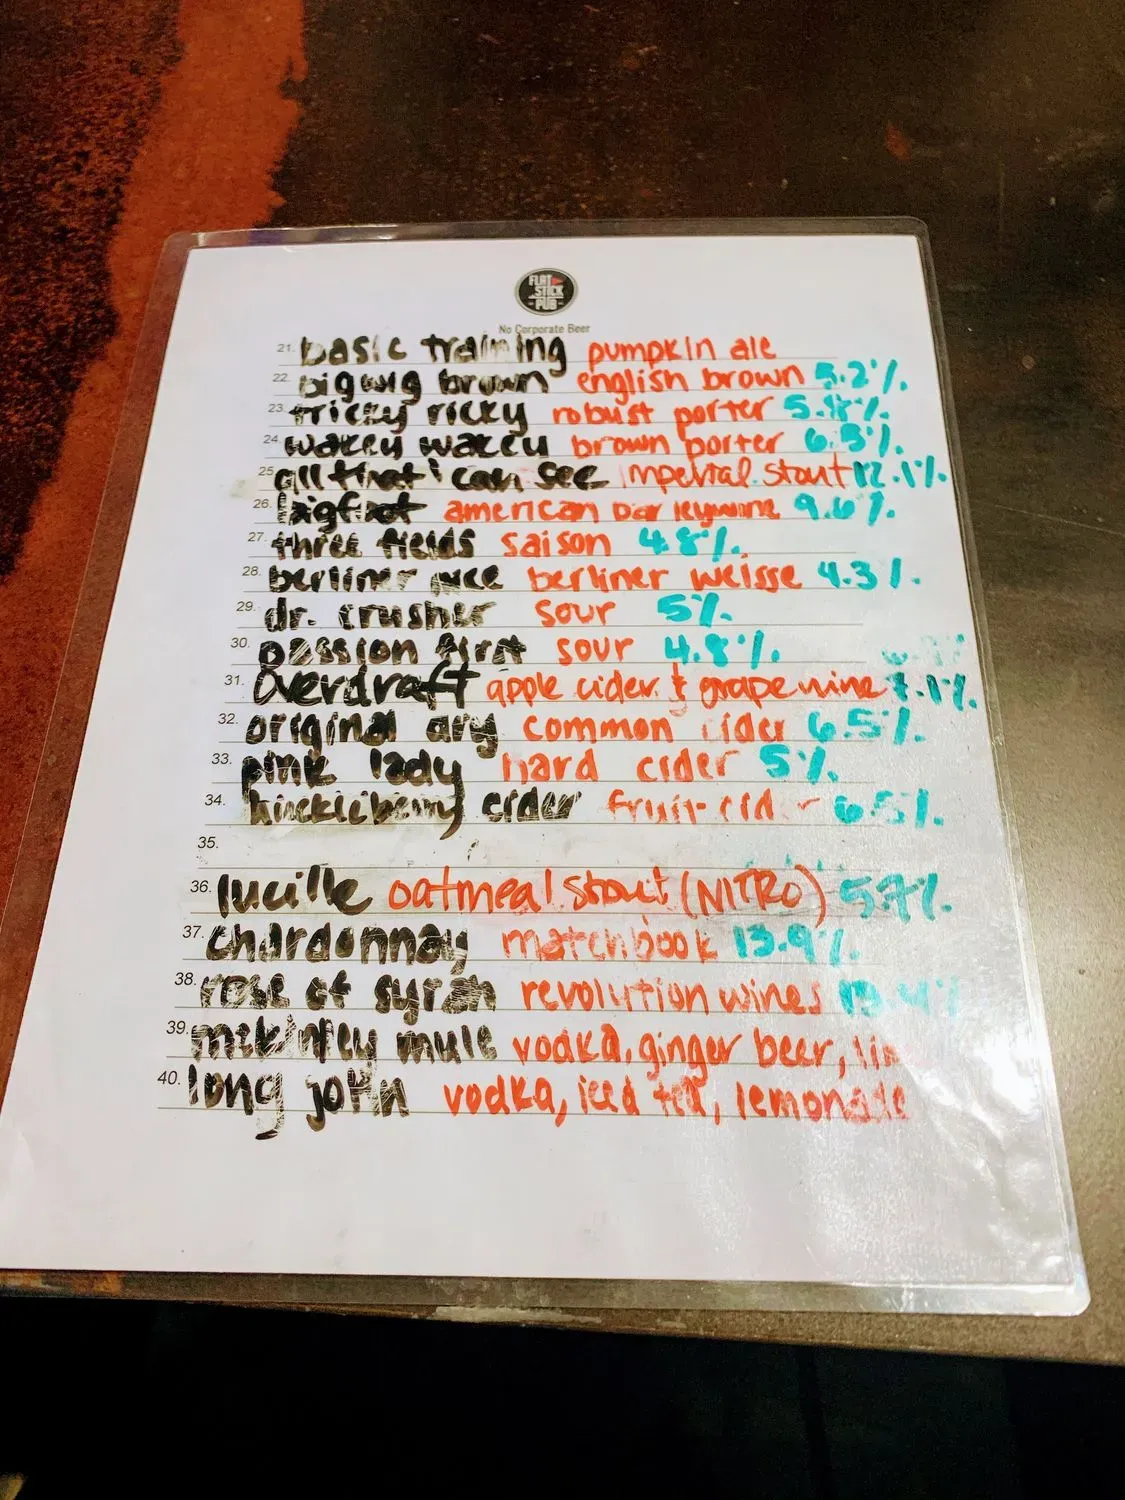 FLAT
STICK
PUB
No Corporate Beer
21. basic training pumpkin ale
22. bigwig brown english brown 5.2%
23. tricky ricky robust porter 5.8%
24. wakey wakey brown porter 6.3%
25. all that i can see imperial stout 12.1%
26. bigfoot american barleywine 9.6%
27. three fields saison 4.8%
28. berliner berliner weisse 4.3%
29. dr. crusher sour 5%
30. passion first sour 4.8%
31. overdraft apple cider & grape wine 7.1%
32. original dry common cider 6.5%
33. pink lady hard cider 5%
34. huckleberry cider fruit cider 6.5%
35.
36. lucille oatmeal stout (NITRO) 5.7%
37. chardonnay matchbook 13.9%
38. rose of syrah revolution wines 13.4%
39. mckinley mule vodka, ginger beer, lime
40. long john vodka, iced tea, lemonade